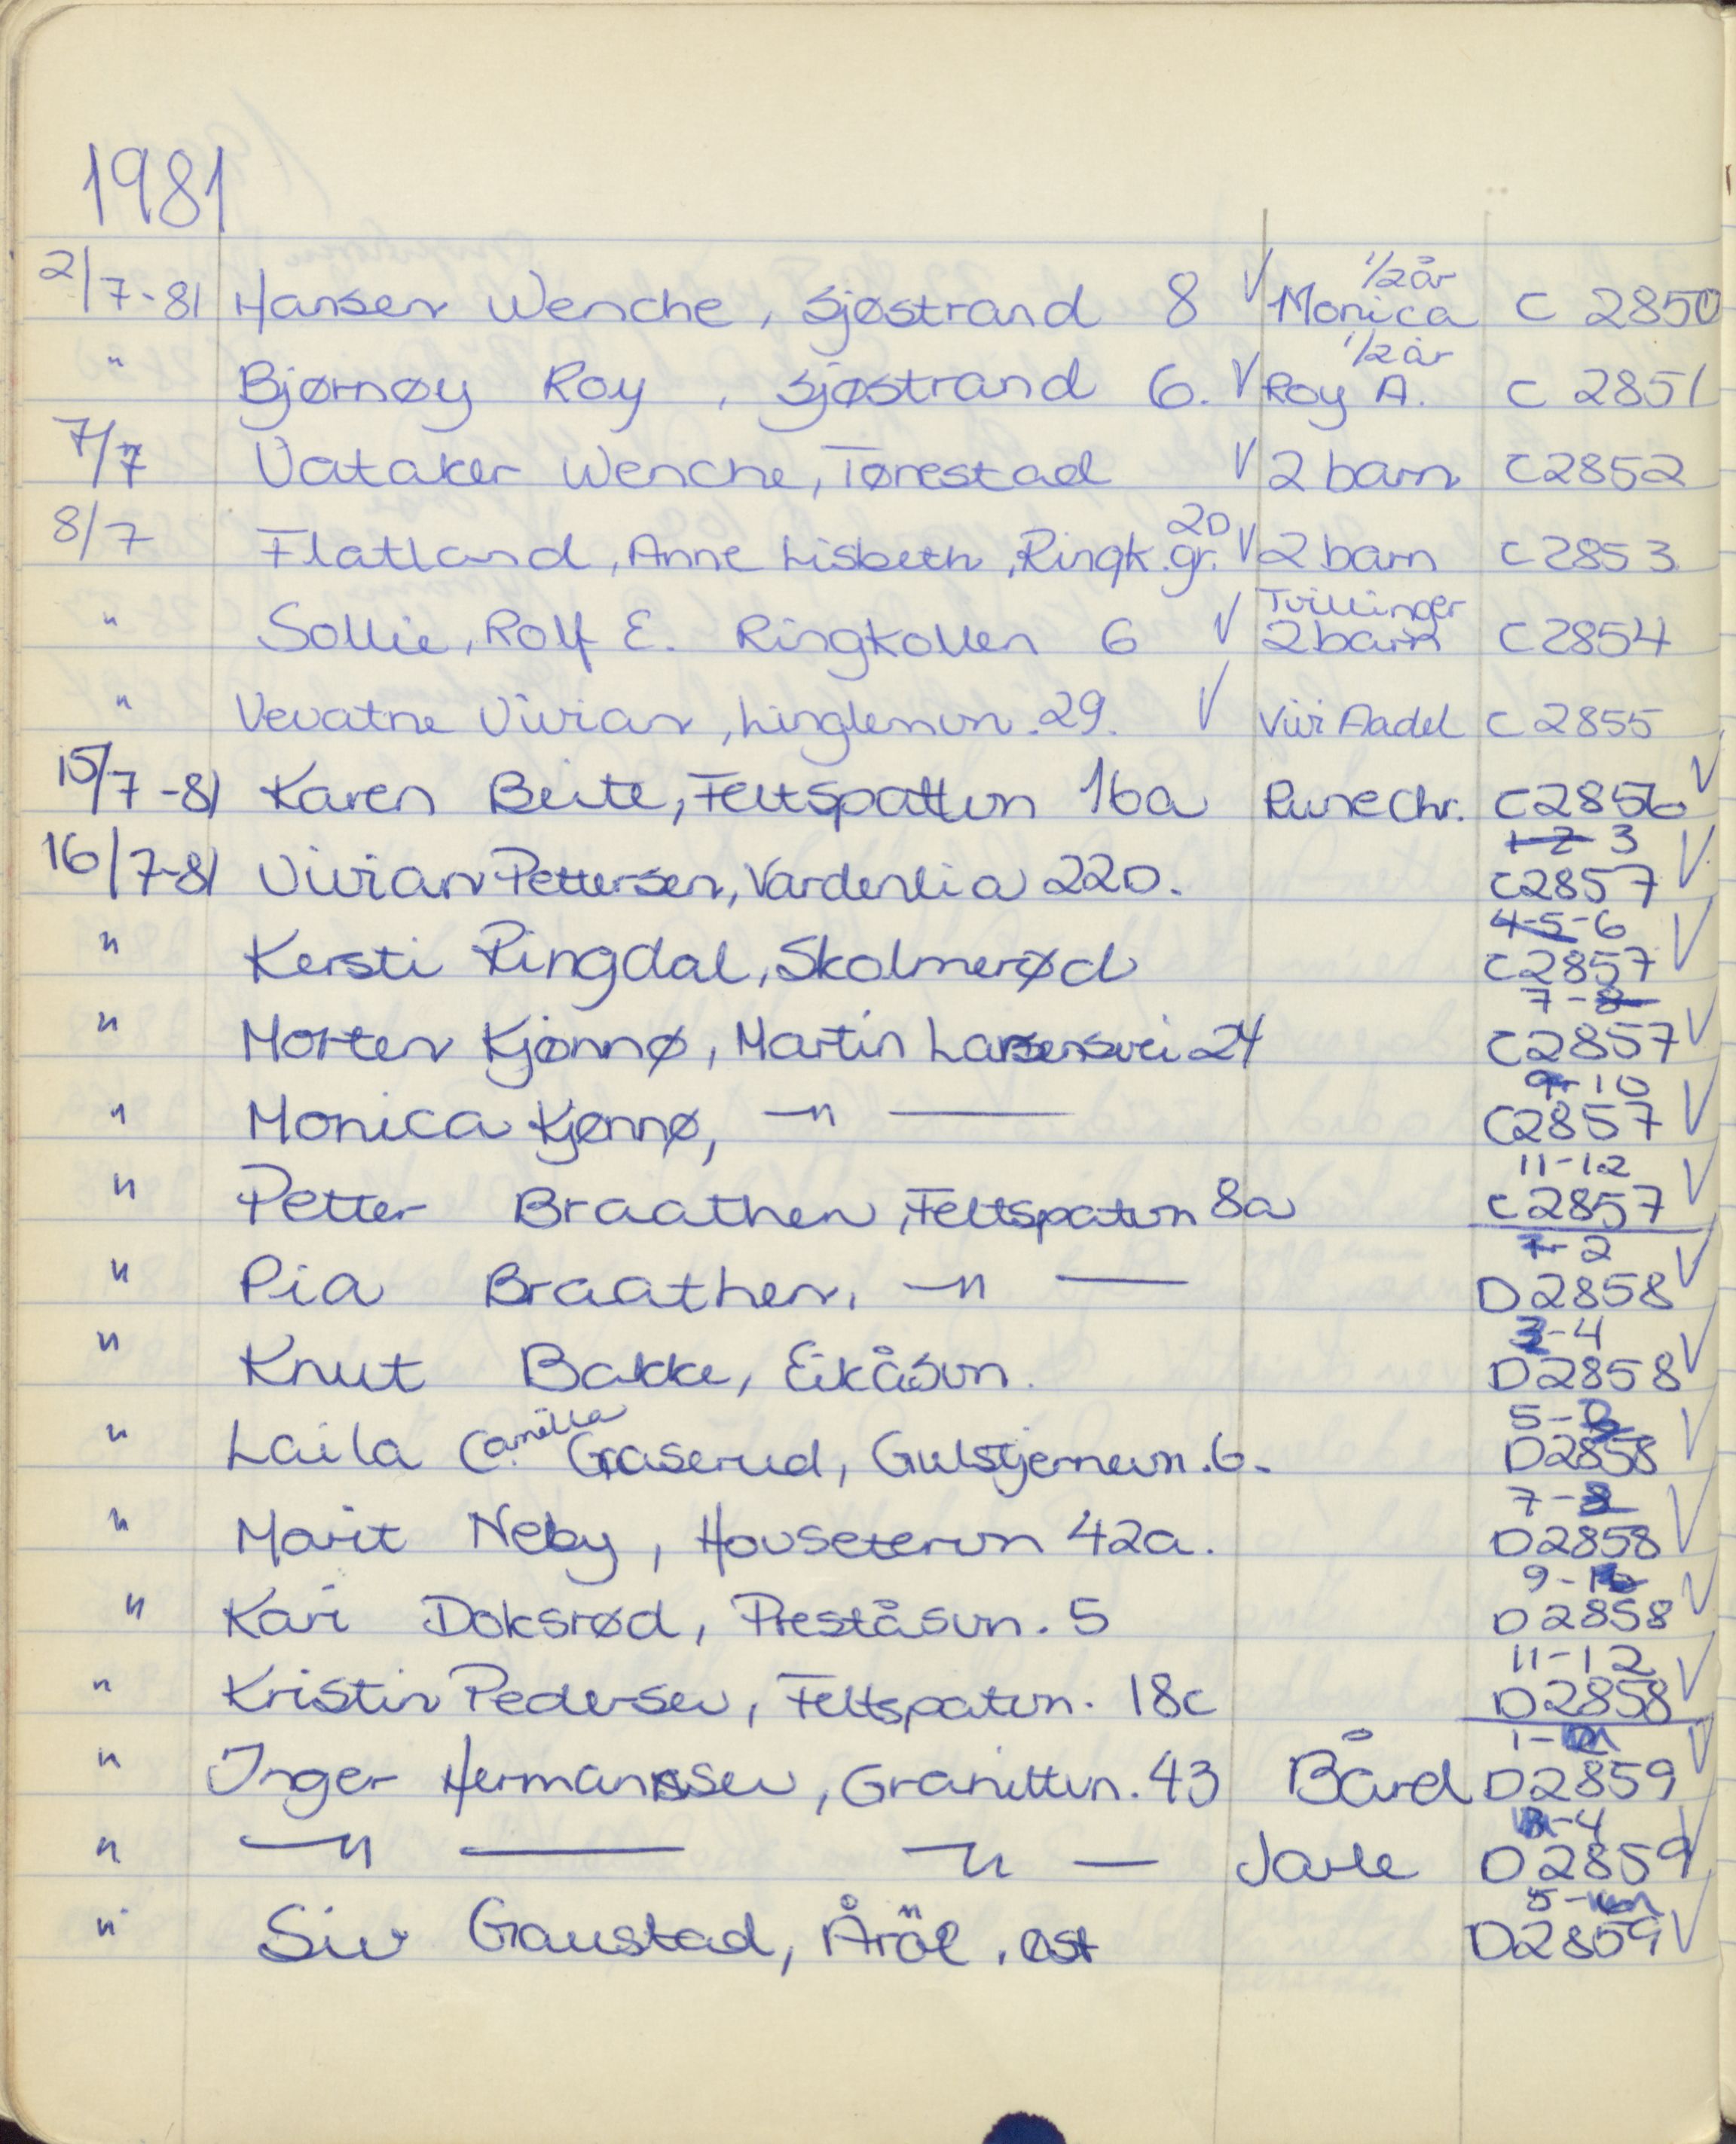 1981
2/7-81 Hansen Wenche, Sjøstrand 8 √ Monica 1/2 år C 2850
" Bjørnøy Roy, Sjøstrand 6. √ Roy A. 1/2 år C 2851
7/7 Vataker Wenche, Tønestad √ 2 barn C2852
8/7 Flatland, Anne Lisbeth, Ringk.gr. 20 √ 2 barn C2853
" Sollie, Rolf E. Ringkollen 6 √ Tvillinger 2 barn C2854
" Vevatne Vivian, Linglemvn. 29. √ Vivi Aadel C2855
15/7-81 Karen Beite, Feltspattvn 16a Rune Chr. C2856 √
16/7-81 Vivian Pettersen, Vardenlia 22D. 1-2-3 C2857 √
" Kersti Ringdal, Skolmerød 4-5-6 C2857 √
" Morten Kjønnø, Martin Larsensvei 24 7-8 C2857 √
" Monica Kjønnø, —"— 9-10 C2857 √
" Petter Braathen, Feltspatvn 8a 11-12 C2857 √
" Pia Braathen, —"— 1-2 D2858 √
" Knut Bakke, Eikåsvn. 3-4 D2858 √
" Laila Camilla Graserud, Gulstjernevn. 6. 5- D2858 √
" Marit Neby, Hovsetervn 42a. 7-8 D2858 √
" Kari Doksrød, Preståsvn. 5 9-10 D2858 √
" Kristin Pedersen, Feltspatvn. 18c 11-12 D2858 √
" Inger Hermansen, Granittvn. 43 Bård 1-2 D2859 √
" —"— —"— Jarle 3-4 D2859 √
" Siv Gaustad, Årøl. øst 5- D2859 √